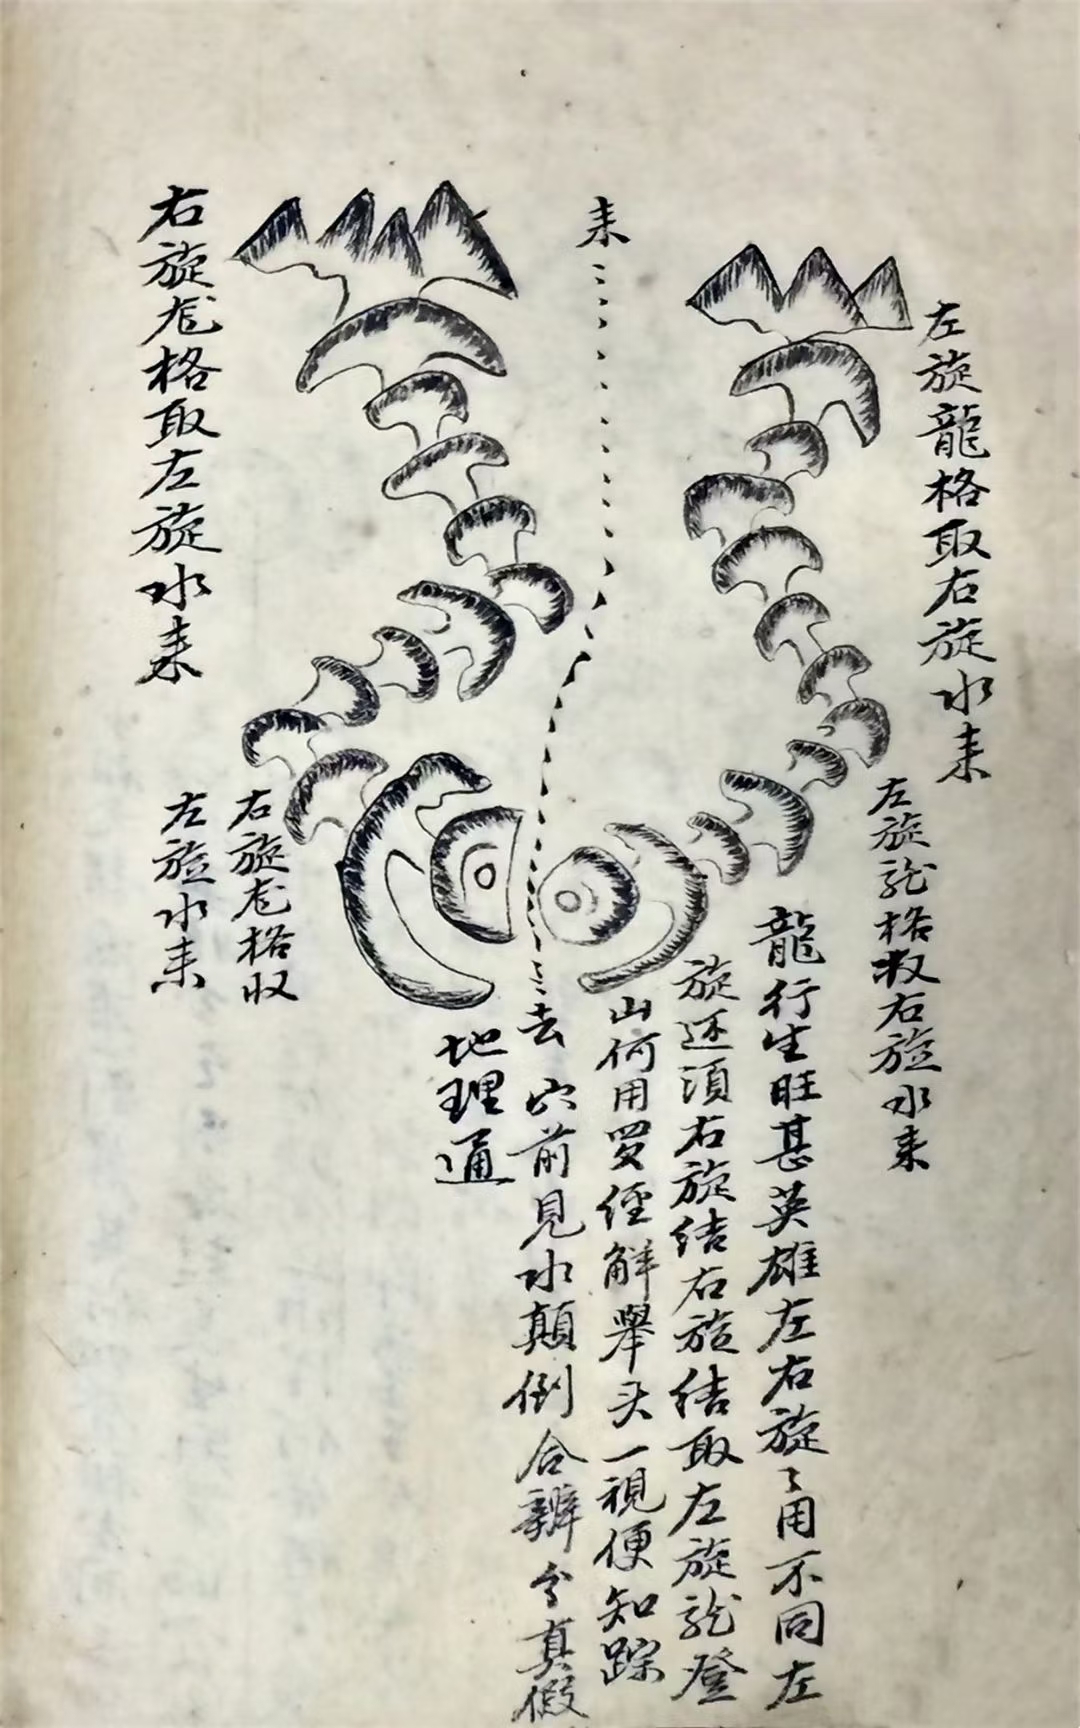 左旋龍格取右旋水来
左旋龙格收右旋水来
龍行生旺甚英雄左右旋〻用不同左
旋还須右旋结右旋结取左旋龙登
山何用罗经解舉头一視便知踪
穴前見水顛倒合辨分真假
地理通
来
去
右旋龙格取左旋水来
右旋龙格收
左旋水来